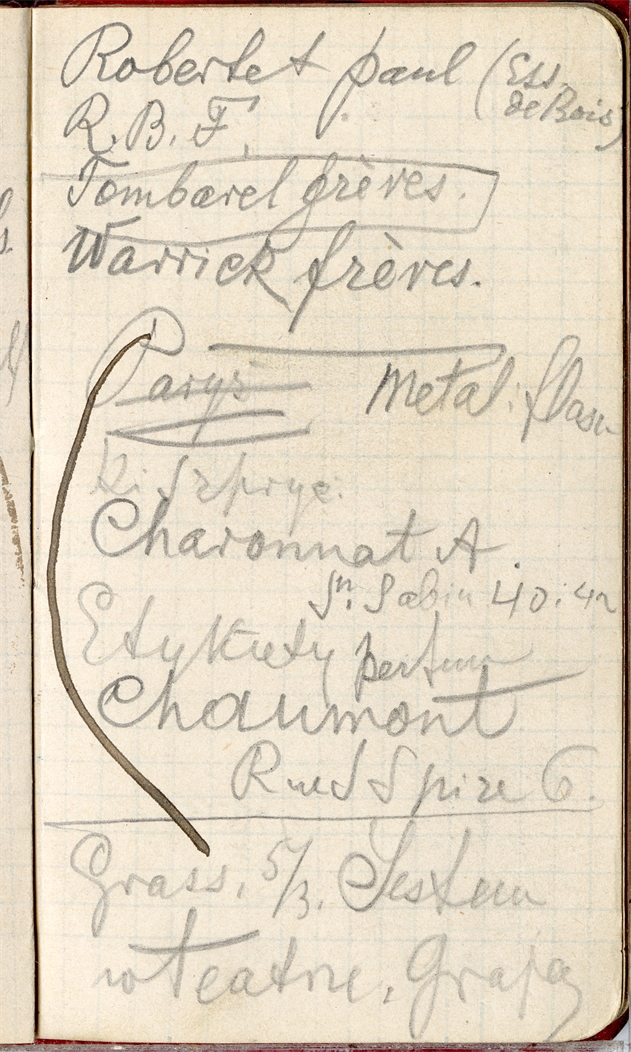 Robertet paul (Ess.
de Bois)
R. B. F.
Tombarel frères.
Warrick frères.
Paryż
Metal. flasz
Charonnat A.
St. Sabin 40. 42
Etykiety perfum
Chaumont
Rue S Spire 6.
Grass, 5/3. Jestem
w Teatrze. Grają